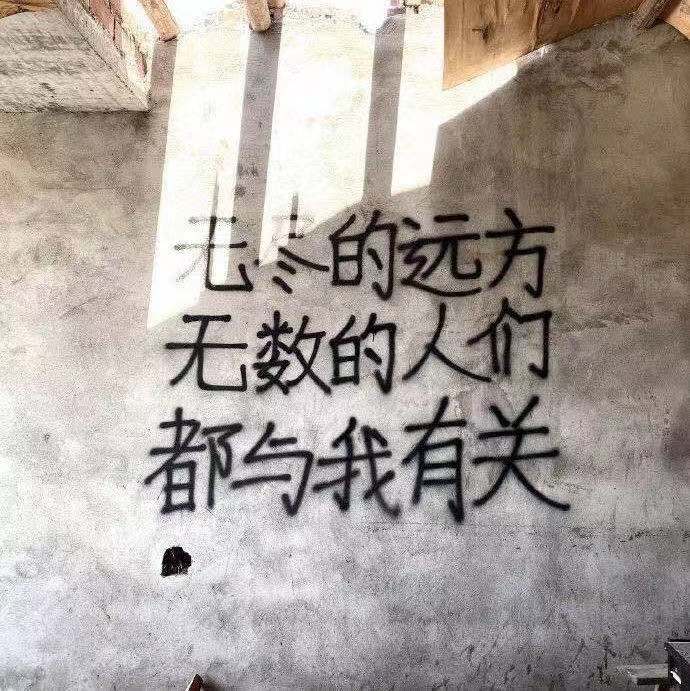 无尽的远方
无数的人们
都与我有关